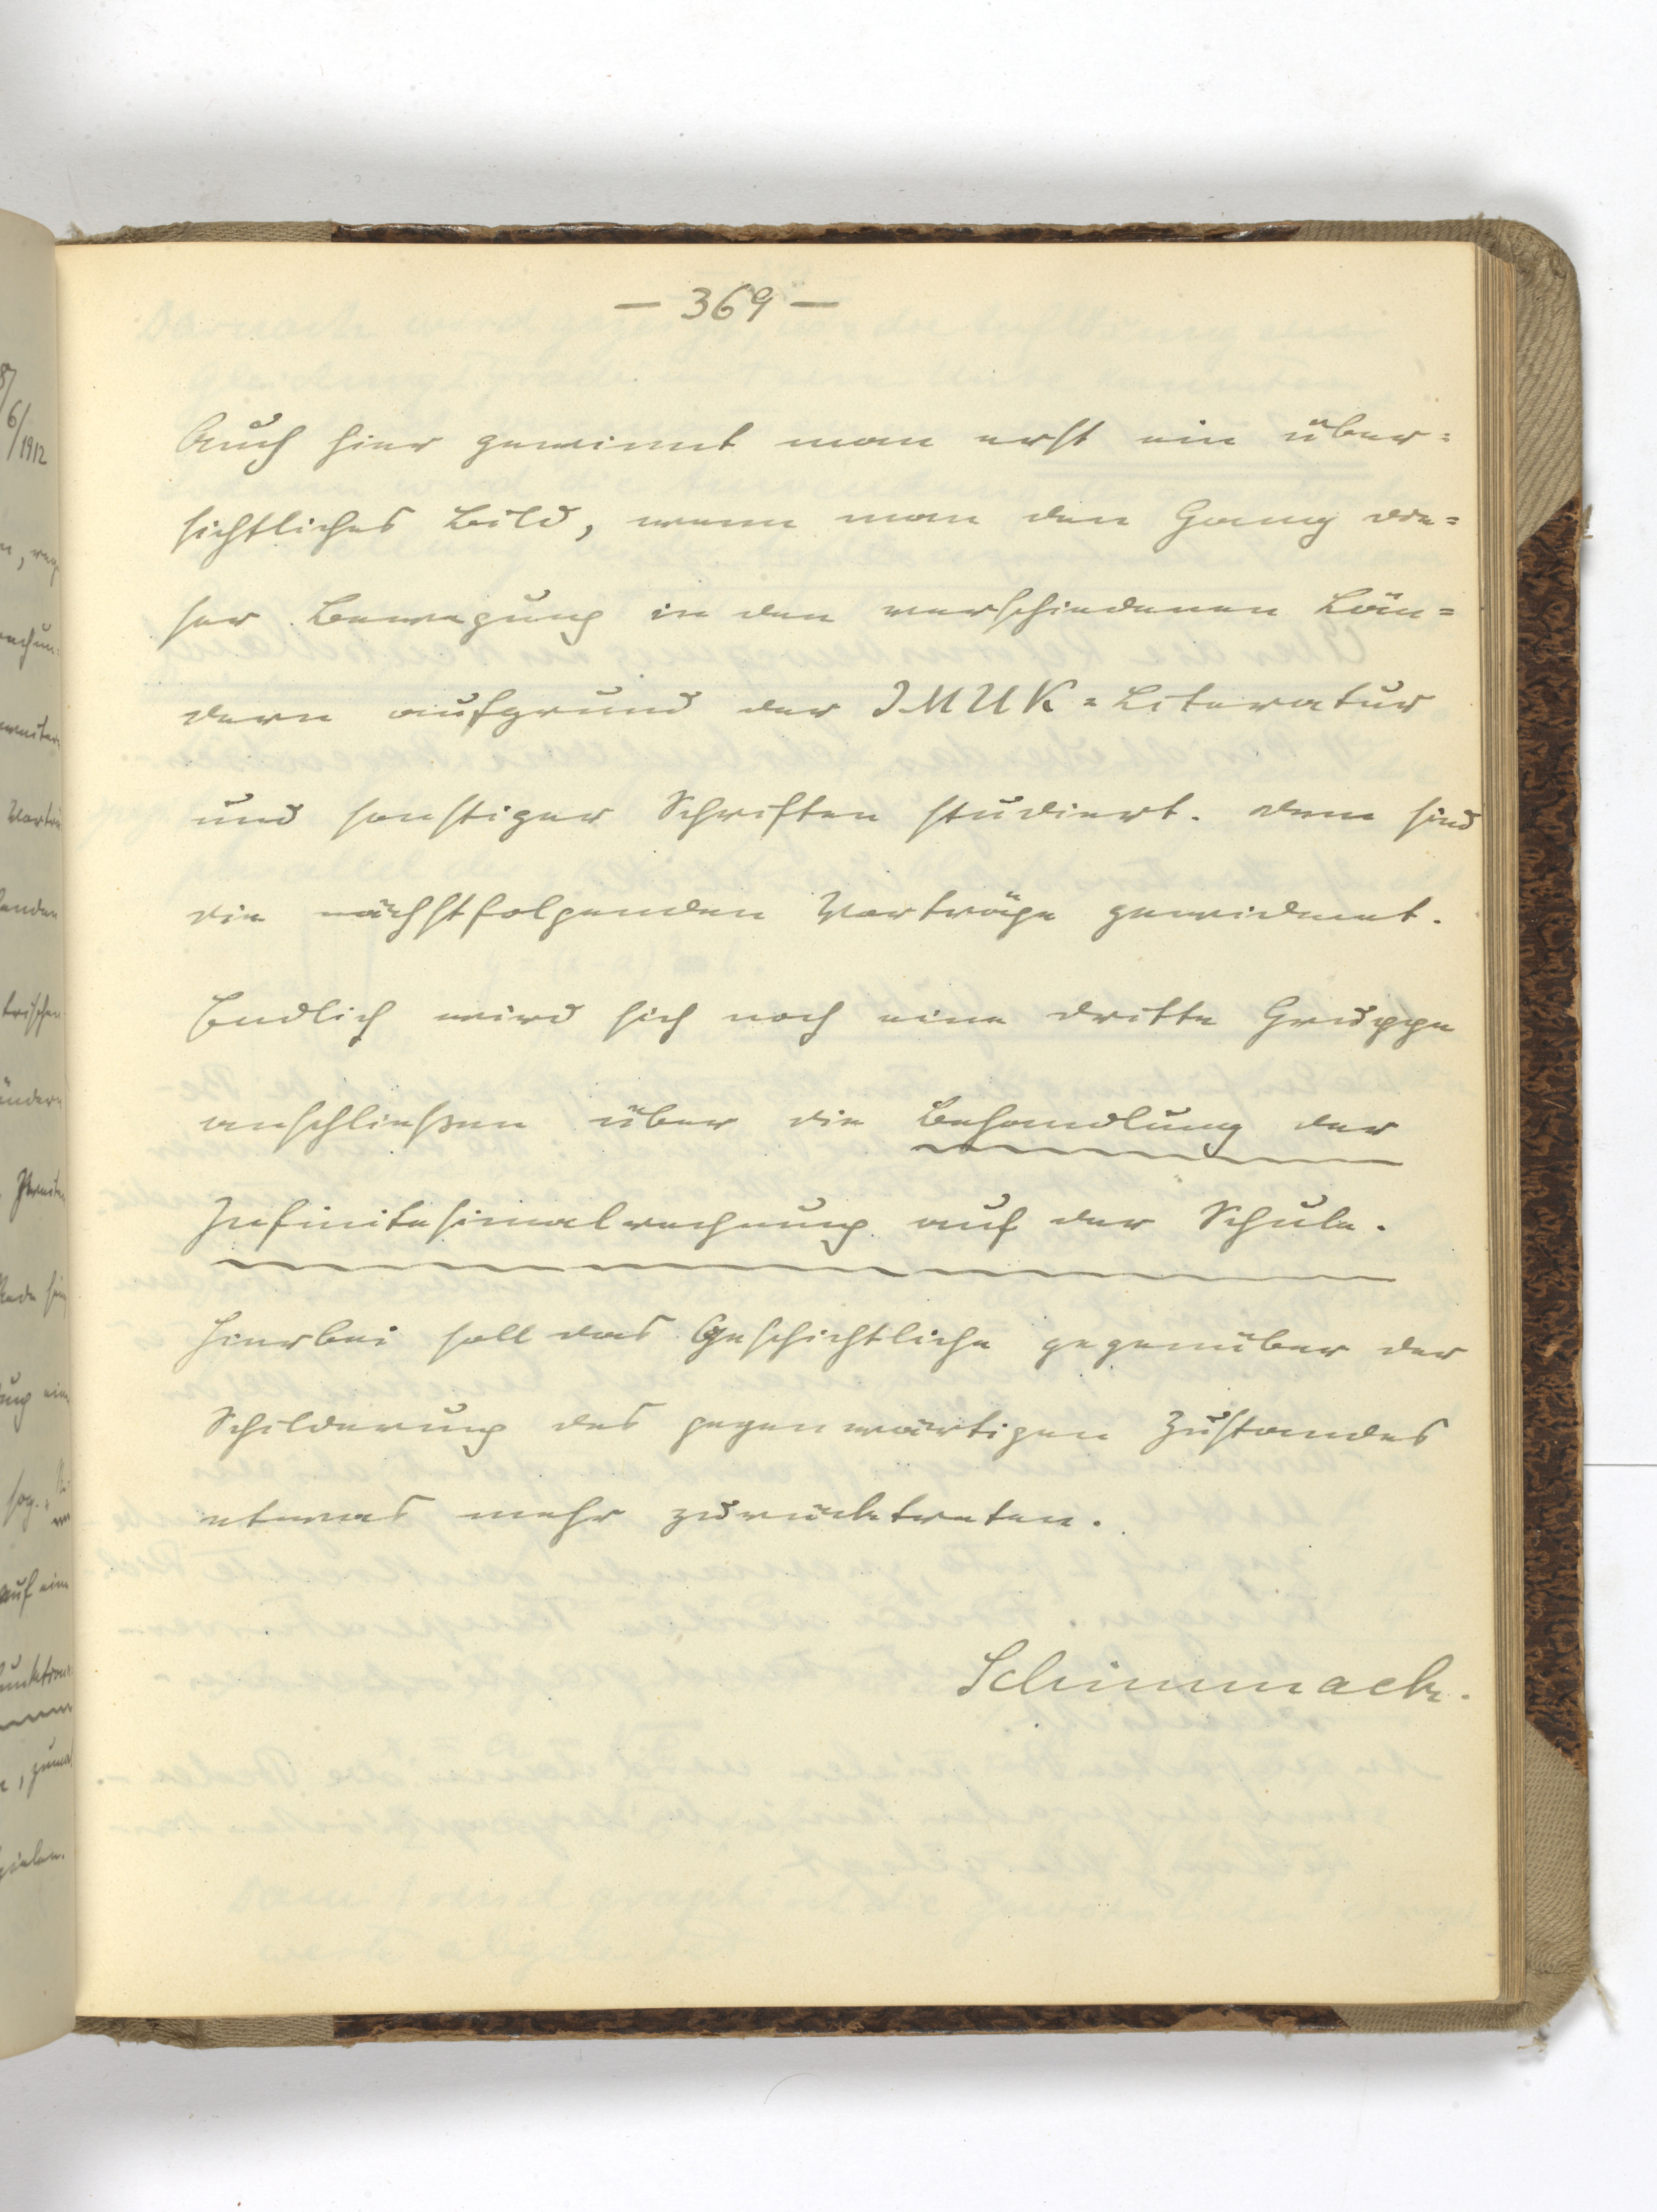 — 369 —
Auch hier gewinnt man erst ein über=
sichtliches Bild, wenn man den Gang die=
ser Bewegung in den verschiedenen Län=
dern aufgrund der IMUK=Literatur
und sonstiger Schriften studiert. Dem sind
die nächstfolgenden Vorträge gewidmet.
Endlich wird sich noch eine dritte Gruppe
anschließen über die Behandlung der
Infinitesimalrechnung auf der Schule.
Hierbei soll das Geschichtliche gegenüber der
Schilderung des gegenwärtigen Zustandes
etwas mehr zurücktreten.
Schimmack.